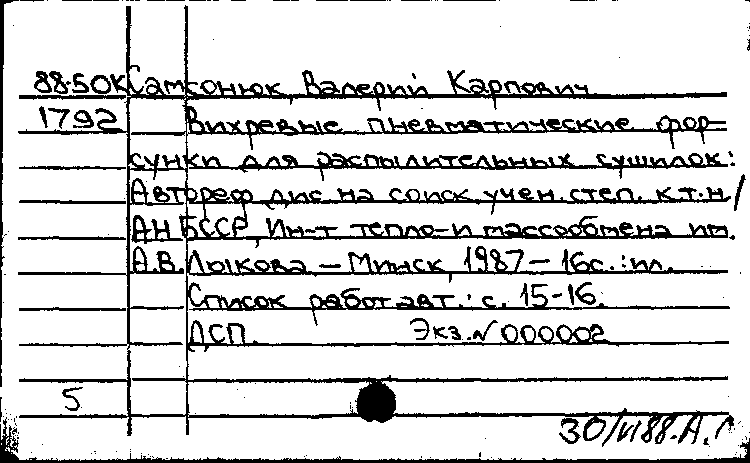 88-50К Самсонюк, Валерий Карпович
1792 Вихревые пневматические фор-
сунки для распылительных сушилок:
Автореф. дис. на соиск. учен. степ. к.т.н./
АН БССР, Ин-т тепло-и массообмена им.
А.В. Лыкова. – Минск, 1987 – 16с.: ил.
Список работ авт.: с. 15-16.
ДСП. Экз. № 000002
5
30/VI 88. А.Л